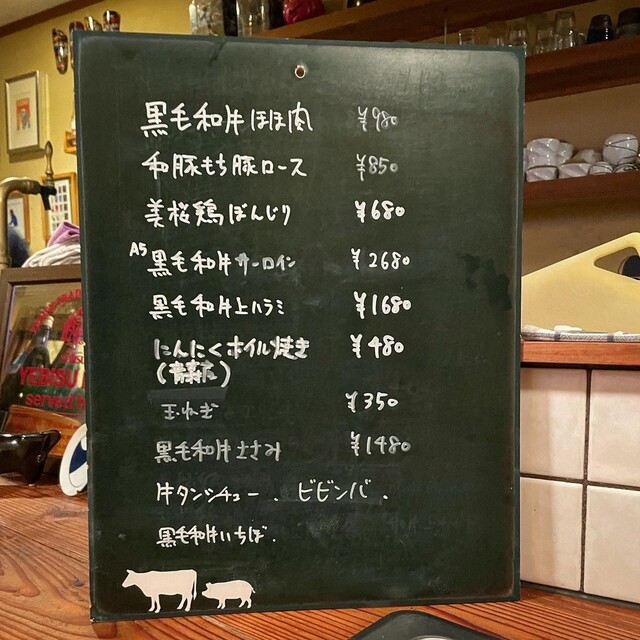 黒毛和牛ほほ肉 ¥980
和豚もち豚ロース ¥850
美桜鶏ぼんじり ¥680
A5 黒毛和牛サーロイン ¥2680
黒毛和牛上ハラミ ¥1680
にんにくホイル焼き ¥480
(青森産)
玉ねぎ ¥350
黒毛和牛ささみ ¥1480
牛タンシチュー . ビビンバ .
黒毛和牛いちぼ .
YEBISU
served